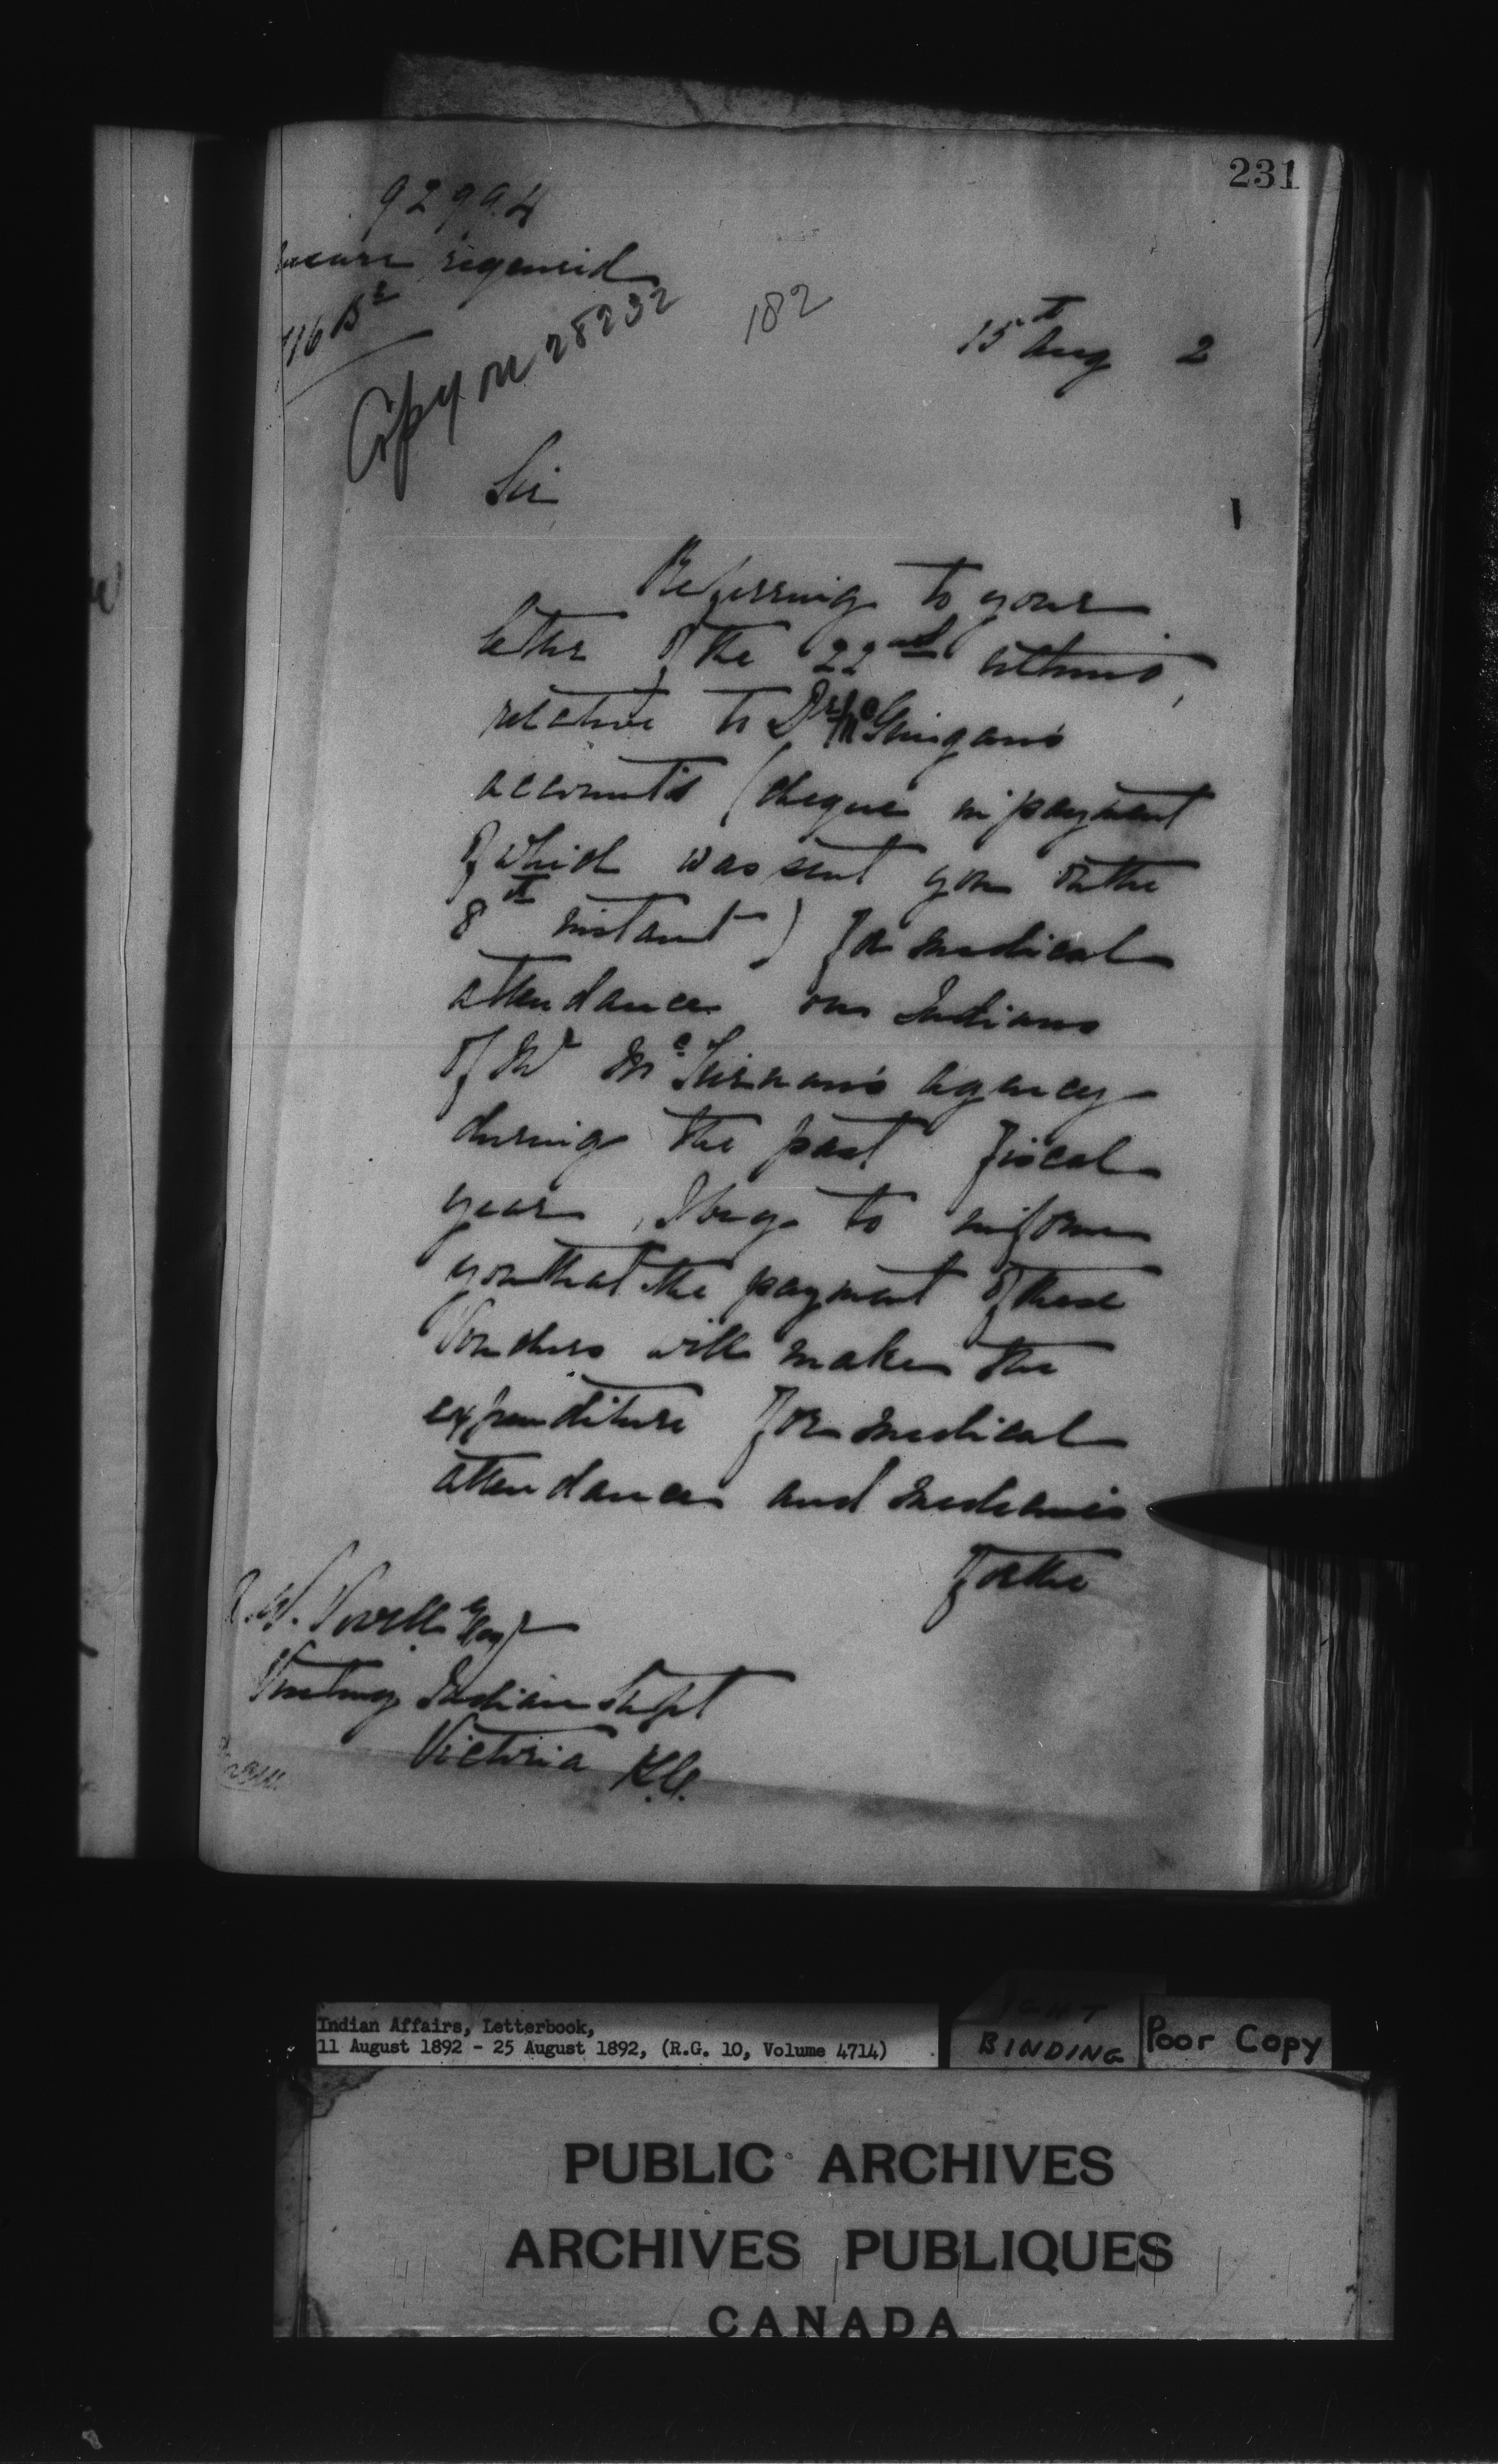 231
92994
116 B2
Copy on 28232
182
15th Aug 2
Sir
Referring to your
letter of the 22nd ultimo,
relative to Dr McGuigan's
accounts (cheque in payment
of which was sent you on the
8th instant) for medical
attendance on Indians
of Mr McTiernan's agency
during the past fiscal
year, I beg to inform
you that the payment of these
Vouchers will make the
expenditure for medical
attendance and medicines
for the
A.W. Vowell Esqr
Visiting Indian Supt
Victoria B.C.
Indian Affairs, Letterbook,
11 August 1892 - 25 August 1892, (R.G. 10, Volume 4714)
BINDING
Poor Copy
PUBLIC ARCHIVES
ARCHIVES PUBLIQUES
CANADA